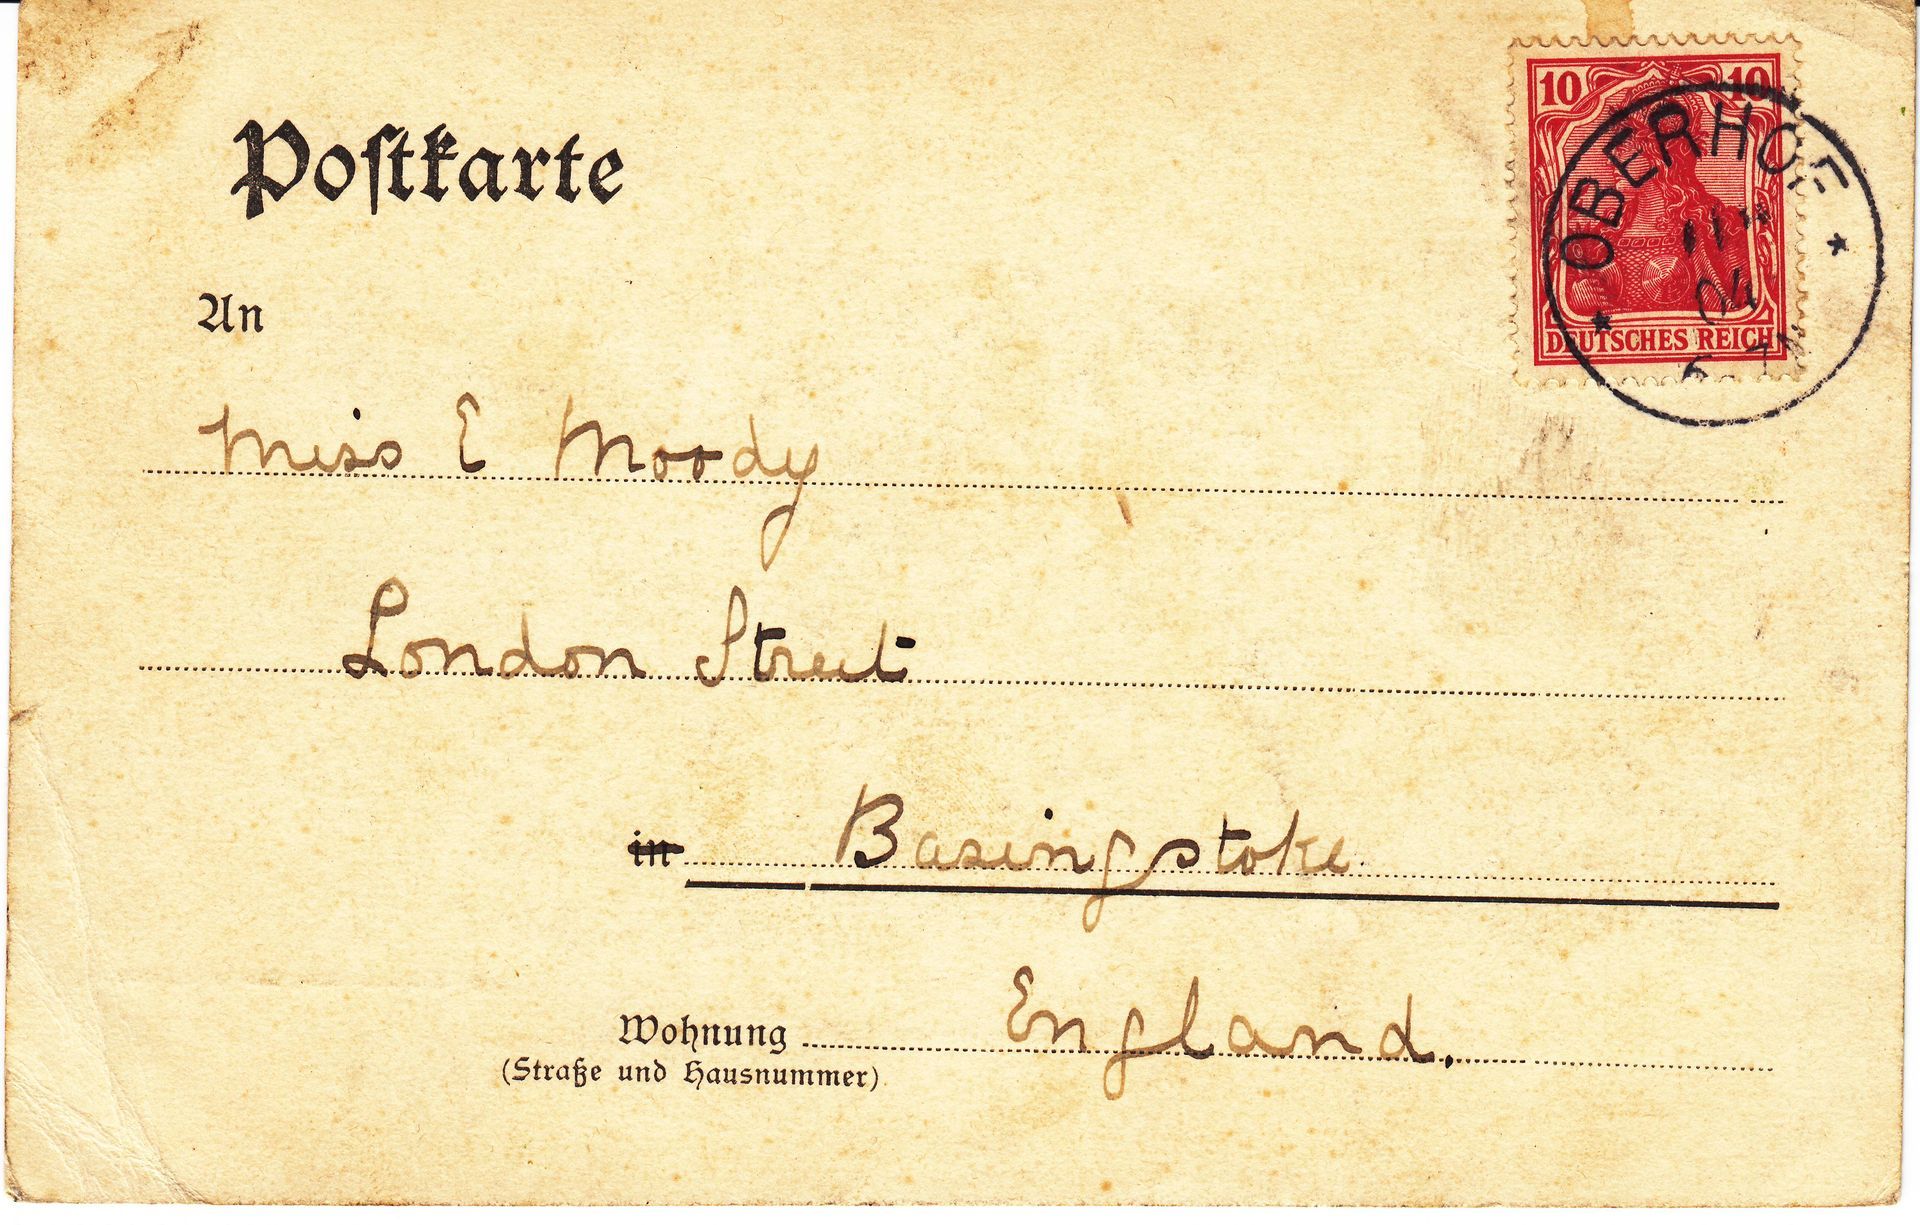 Postkarte
10 10
OBERHOF
04
DEUTSCHES REICH
An
Miss E Moody
London Street
in Basingstoke
England.
Wohnung
(Straße und Hausnummer)